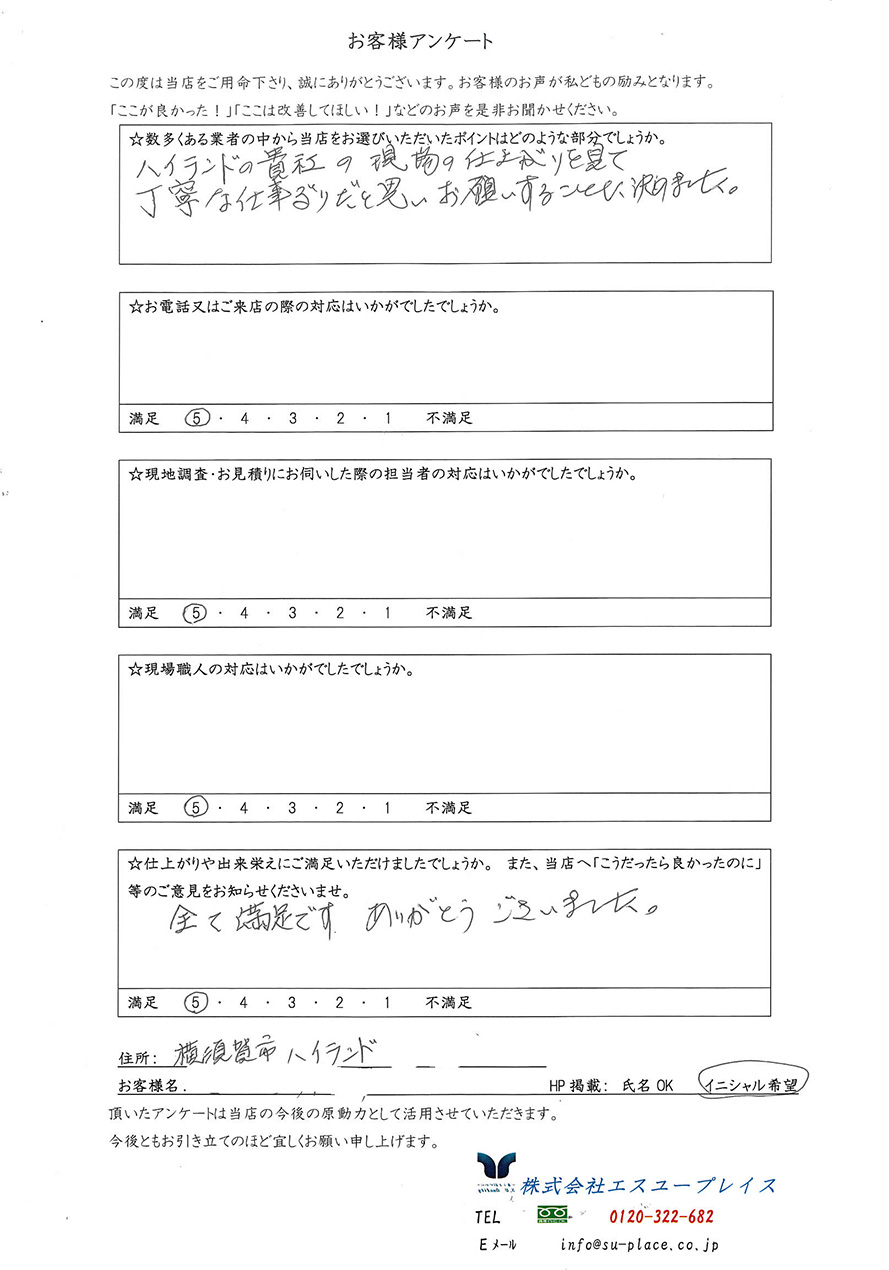 お客様アンケート
この度は当店をご用命下さり、誠にありがとうございます。お客様のお声が私どもの励みとなります。
「ここが良かった！」「ここは改善してほしい！」などのお声を是非お聞かせください。
☆数多くある業者の中から当店をお選びいただいたポイントはどのような部分でしょうか。
ハイランドの貴社の現場の仕上がりを見て
丁寧な仕事ぶりだと思いお願いすることに決めました。
☆お電話又はご来店の際の対応はいかがでしたでしょうか。
満足 5 ・ 4 ・ 3 ・ 2 ・ 1 不満足
☆現地調査・お見積りにお伺いした際の担当者の対応はいかがでしたでしょうか。
満足 5 ・ 4 ・ 3 ・ 2 ・ 1 不満足
☆現場職人の対応はいかがでしたでしょうか。
満足 5 ・ 4 ・ 3 ・ 2 ・ 1 不満足
☆仕上がりや出来栄えにご満足いただけましたでしょうか。 また、当店へ「こうだったら良かったのに」
等のご意見をお知らせくださいませ。
全て満足です ありがとうございました。
満足 5 ・ 4 ・ 3 ・ 2 ・ 1 不満足
住所： 横須賀市ハイランド
お客様名． HP掲載： 氏名OK イニシャル希望
頂いたアンケートは当店の今後の原動力として活用させていただきます。
今後ともお引き立てのほど宜しくお願い申し上げます。
株式会社エスユープレイス
TEL 0120-322-682
Eメール info@su-place.co.jp